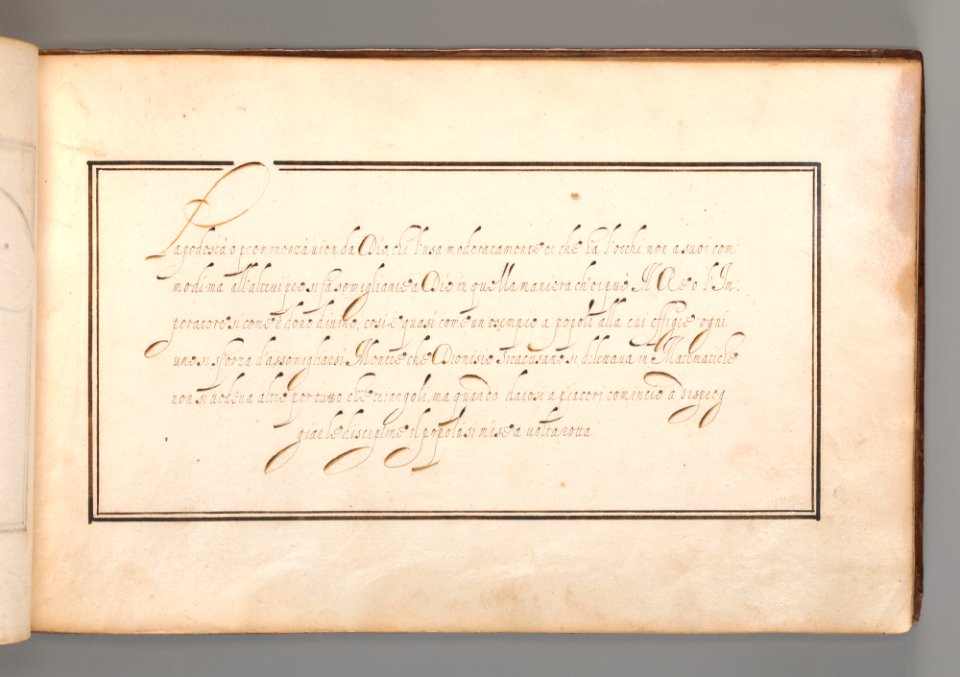 La podestà o preminenza vien da Dio, chi l'usa moderatamente et che ha l'occhi non a suoi com:
modi ma all'altrui pro si fa somigliante a Dio in quella maniera ch'ei può Il Re o l'Im:
peratore si come è dono divino, così è quasi come un esempio a popoli alla cui effigie ogni
uno si sforza d'assomigliarsi Mentre che Dionisio Siracusano si dilettava in Matematiche
non si vedeva altro per tutto che triangoli, ma quando datosi a piaceri cominciò a dispreg
giar le discipline il popolo si mise a volta rotta